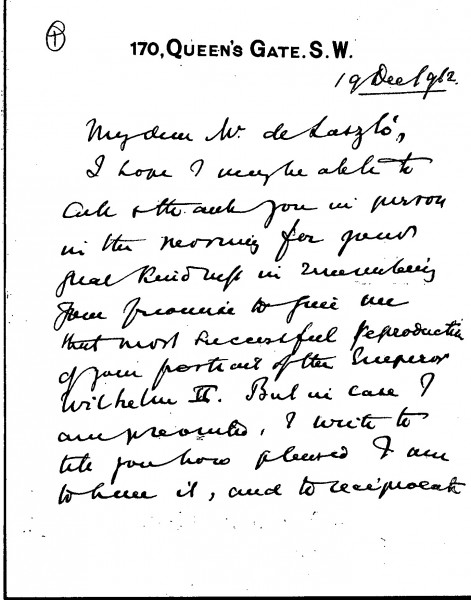 170, QUEEN'S GATE. S. W.
19 Dec 1912.
My dear Mr de László,
I hope I may be able to
call & thank you in person
in the morning for your
great kindness in remembering
your promise to give me
that most successful reproduction
of your portrait of the Emperor
Wilhelm II. But in case I
am prevented, I write to
tell you how pleased I am
to have it, and to reciprocate